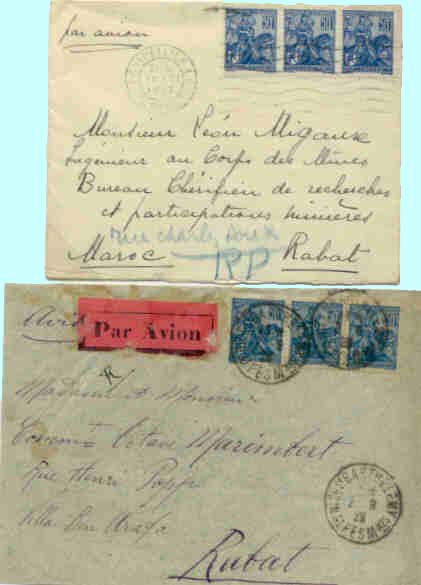 par avion
50 50 50
Monsieur Léon Migaux
Ingénieur au Corps des Mines
Bureau Chérifien de recherches
et participations minières
rue Charle Roux
Maroc RP Rabat
Avion
Par Avion
Madame et Monsieur
Octave Marimbert
Rue Henri Popp
Villa Ben Arafa
Rabat